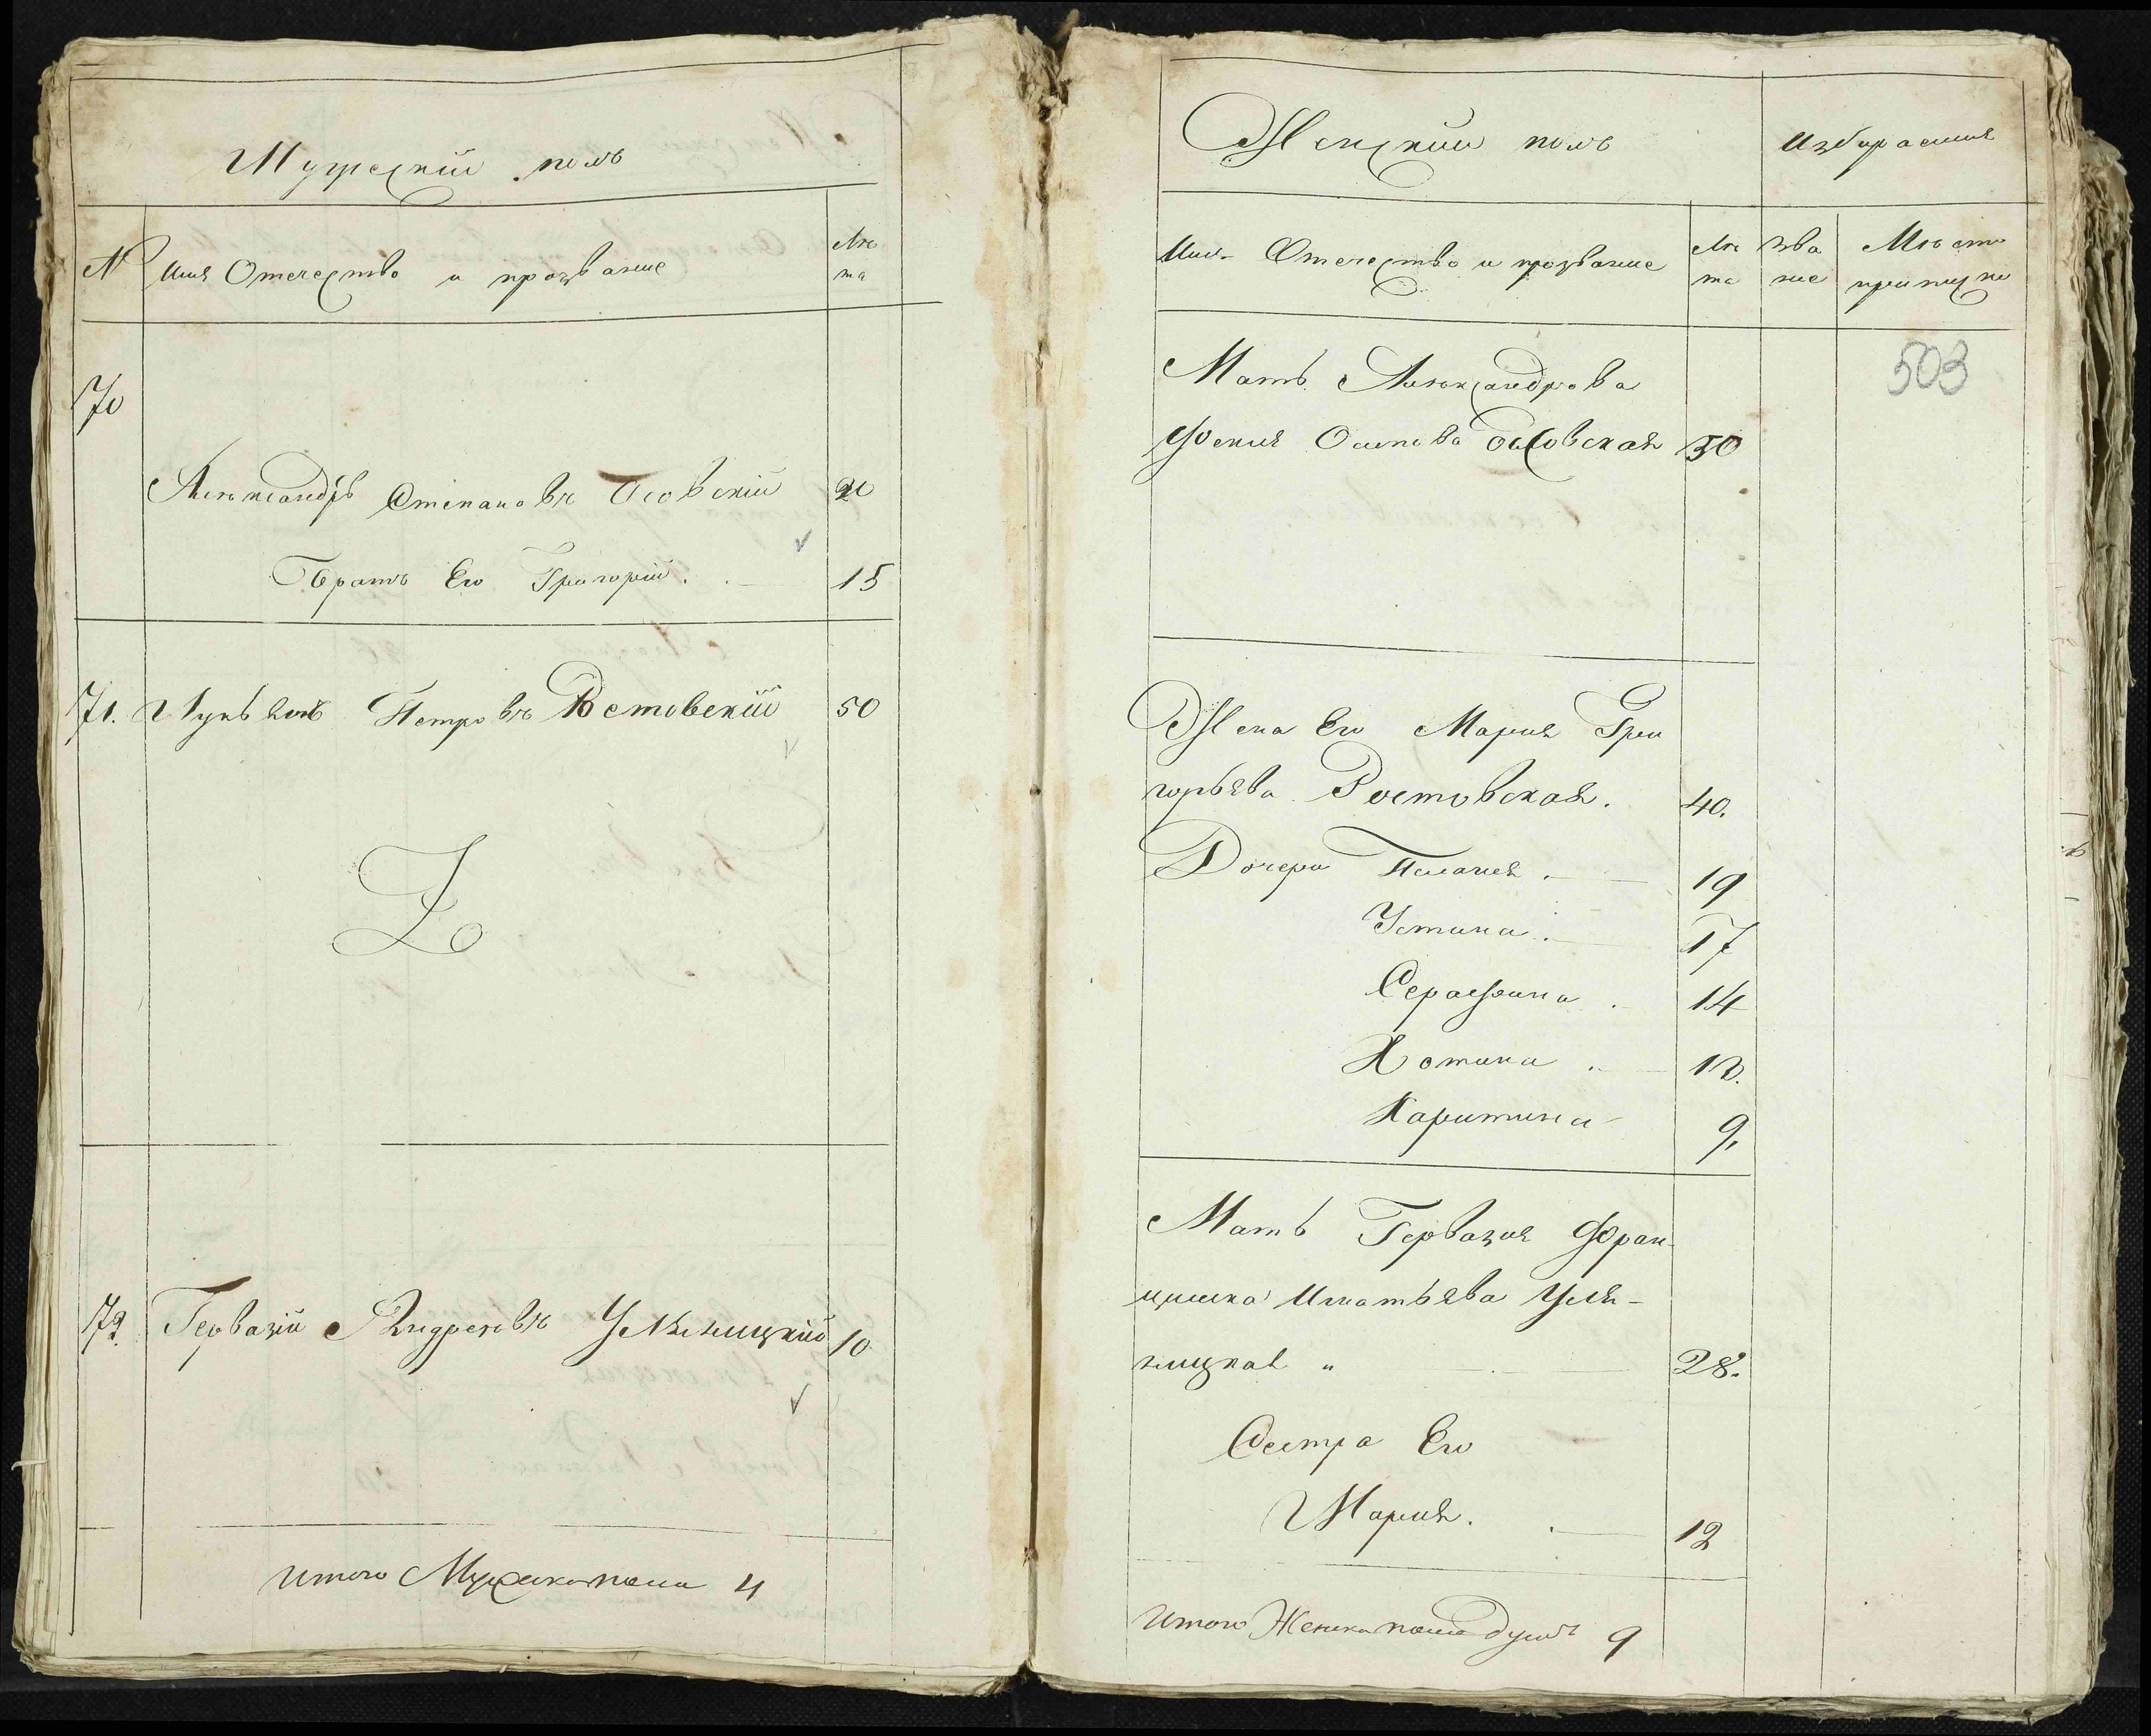 Мужескiй полъ
№ Имя Отечество и прозванiе Лѣ
та
70
Александръ Степановъ Осовскiй 20
Братъ Его Григорiй . 15
71. Лукьянъ Петровъ Ростовскiй 50
72. Гервазiй Андреевъ Уляницкiй 10
итого Мужска пола 4
Женскiй полъ
Избирания
Имя Отечество и прозванiе Лѣ зва Место
та нiе приписки
503
Мать Александрова
Фенiя Осипова Осовская 50
Жена Его Марiя Гри
горьева Ростовская. 40.
Дочери Пелагея . 19
Устина . 17
Серафина . 14
Хотина . 12.
Харитина 9,
Мать Гервазiя Фран-
цишка Игнатьева Уля-
ницкая 28.
Сестра Его
Марiя. 12
итого Женска пола душъ 9